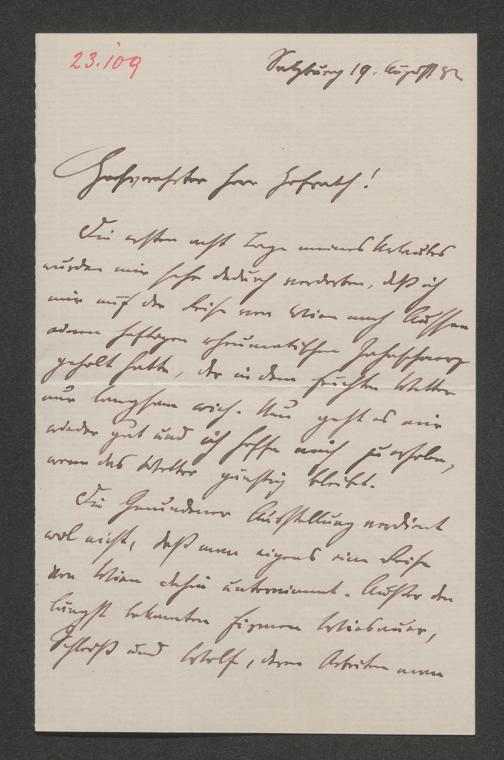 23.109
Salzburg 19. August 82
Hochverehrter Herr Hofrath!
Die ersten acht Tage meines Urlaubes
wurden mir sehr dadurch verdorben, daß ich
mir auf der Reise von Wien nach Aussee
einen heftigen rheumatischen Zahnschmerz
geholt hatte, der in dem feuchten Wetter
nur langsam wich. Nun geht es mir
wieder gut und ich hoffe mich zu erholen,
wenn das Wetter günstig bleibt.
Die Gmundener Ausstellung verdient
wol nicht, daß man eigens eine Reise
von Wien dahin unternimmt. Außer den
längst bekannten Firmen
Schleiß und , deren Arbeiten man